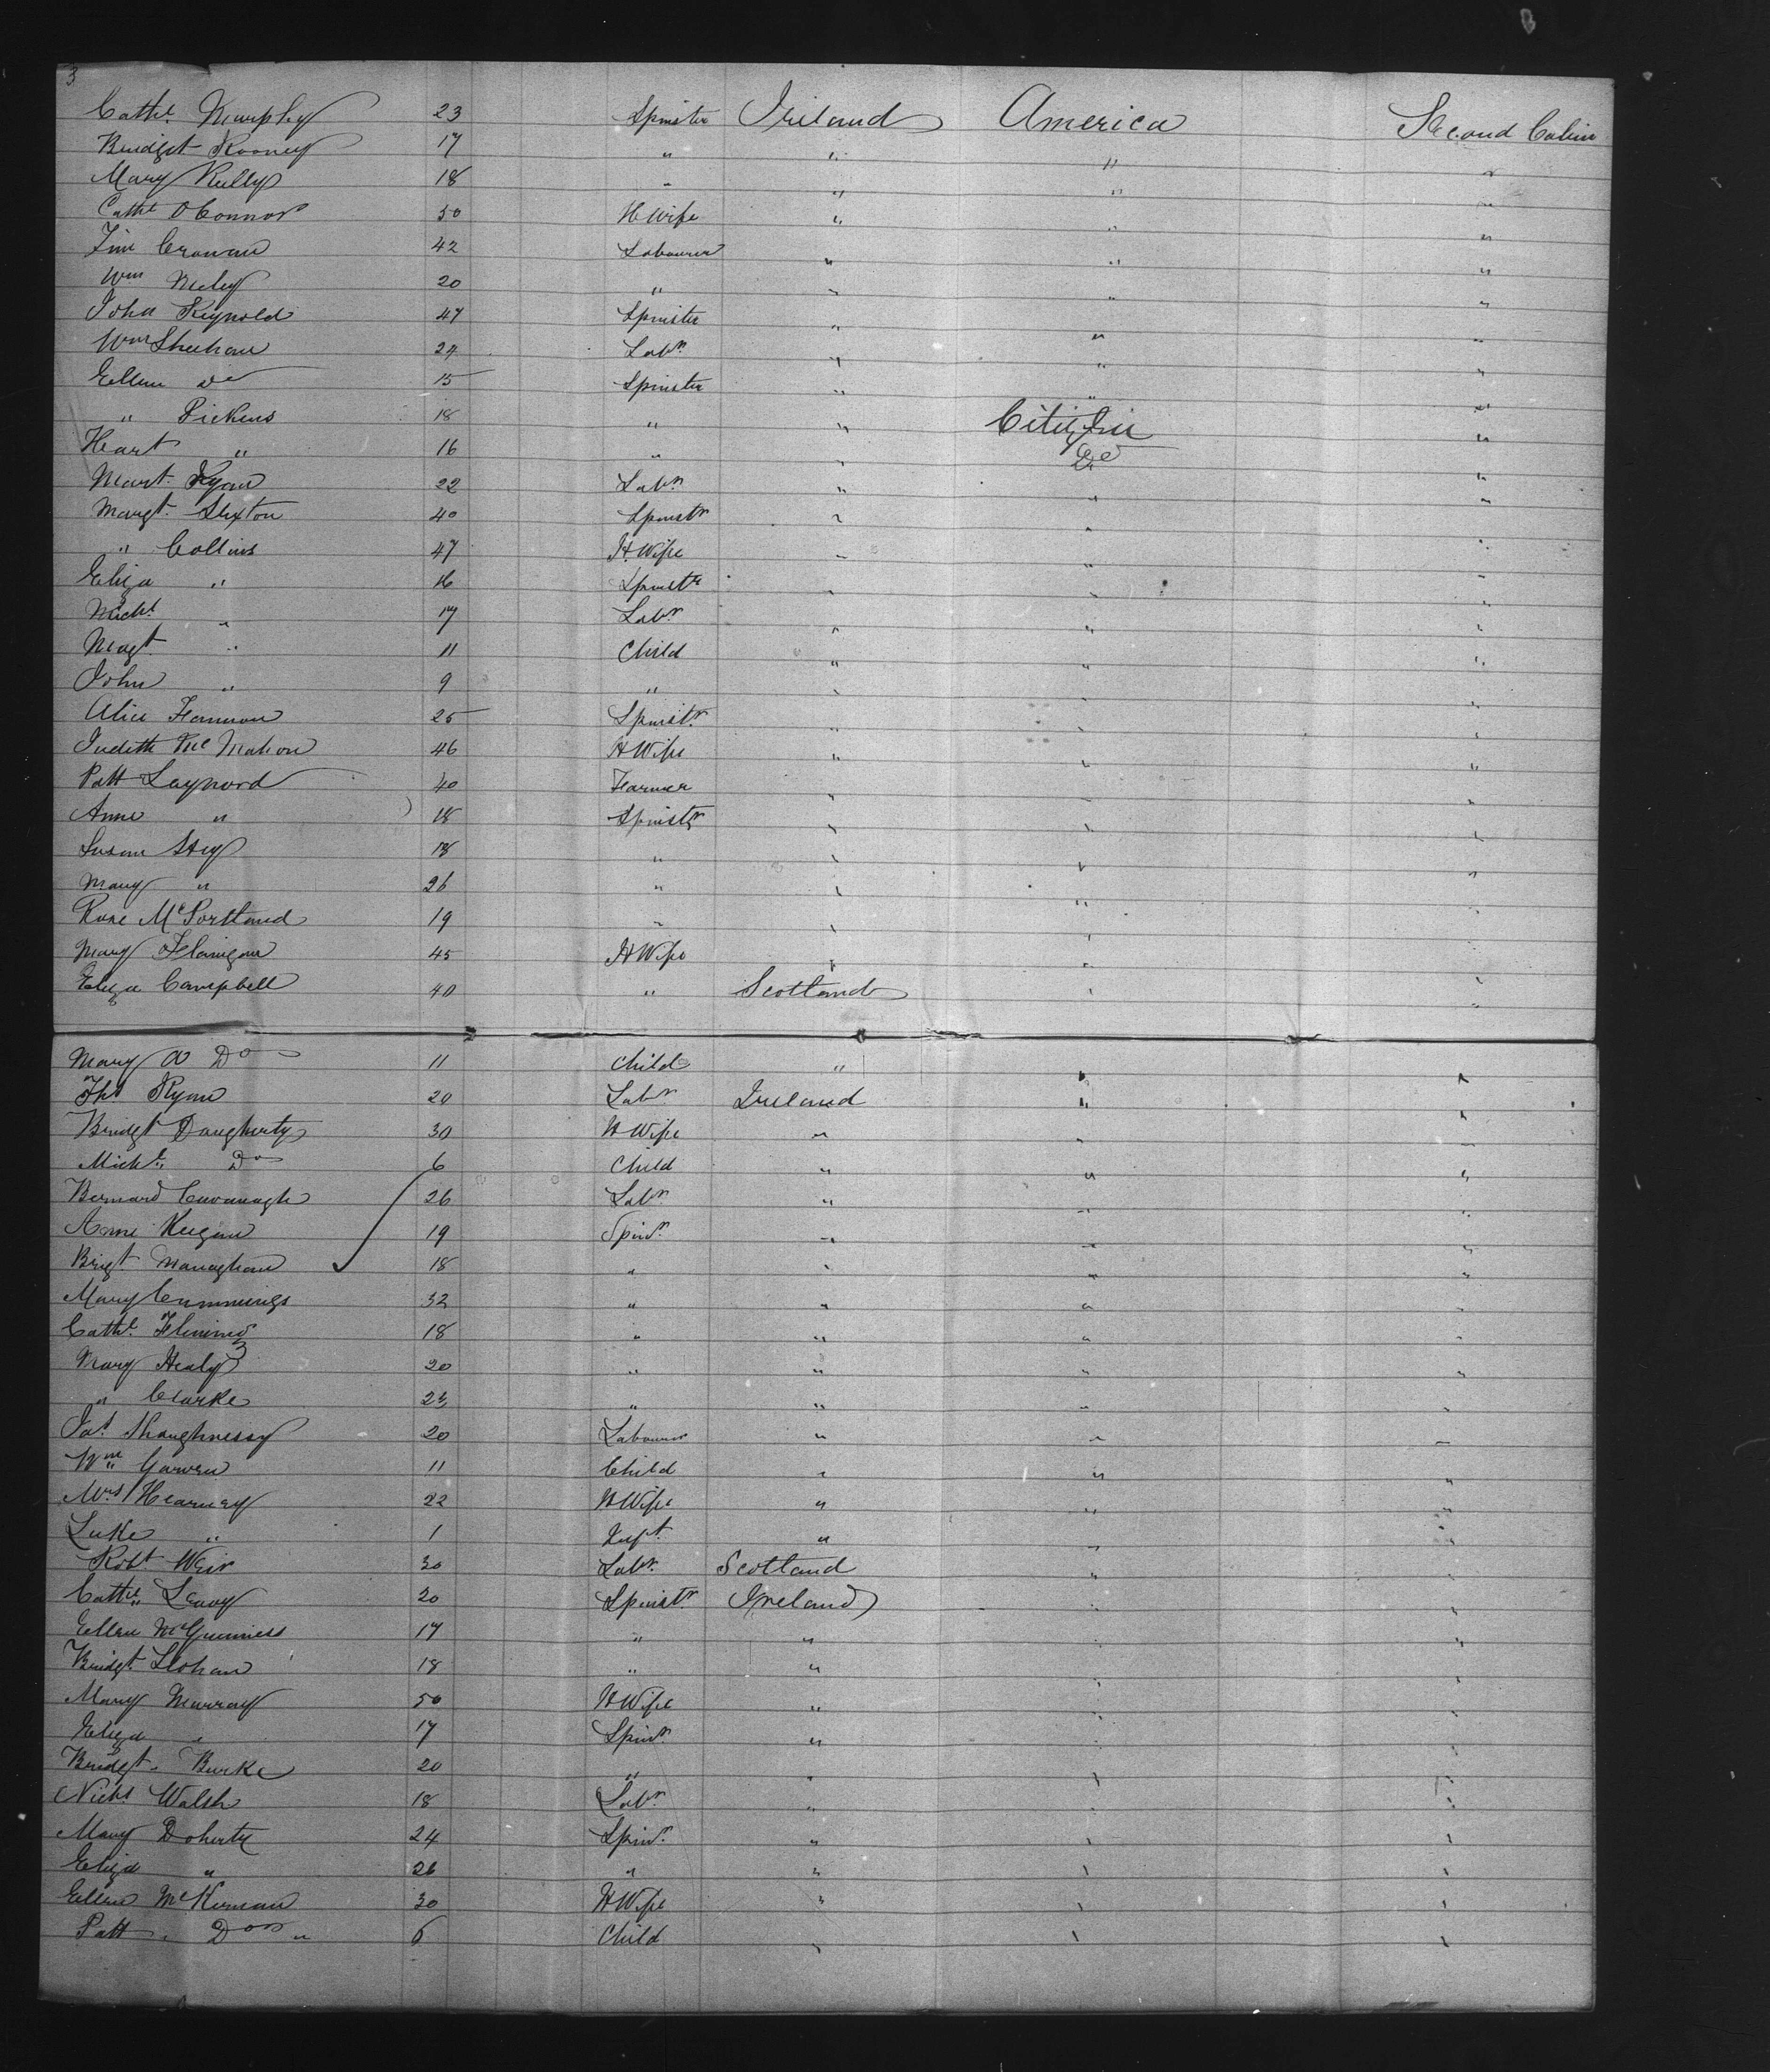 3
Cathe. Murphy 23 Spinster Ireland America Second Cabin
Bridget Rooney 17 " " " "
Mary Kelly 18 " " " "
Cathe O'Connor 30 H Wife " " "
Tim Cronan 42 Labourer " " "
Wm 20 " " " "
John Reynold 47 Spinster " " "
Wm Sheehan 24 Labr. " " "
Ellen Do 15 Spinster " " "
" Pickens 18 " " Citizen "
Hart " 16 " " Do "
Mart. Ryan 22 Labr. " " "
Margt. Sexton 40 Spinstr " " "
" Collins 47 H. Wife " " "
Eliza " 16 Spinstr " " "
Michl. " 17 Labr " " "
Magt. " 11 Child " " "
John " 9 " " " "
Alice Hannon 25 Spinstr. " " "
Judith McMahon 46 H Wife " " "
Patt Laynord 40 Farmer " " "
Anne " 18 Spinstr " " "
Susan 18 " " " "
Mary " 26 " " " "
Rose McPortland 19 " " " "
Mary Flanigan 45 H Wife " " "
Eliza Campbell 40 " Scotland " "
Mary A Do 11 Child " " "
Ths Ryan 20 Labr Ireland " "
Bridgt Daugherty 30 H Wife " " "
Michl. Do 6 Child " " "
Bernard Cavanagh 26 Labr. " " "
Anne Keegan 19 Spinr. " " "
Brigt. Managhan 18 " " " "
Mary Cummings 32 " " " "
Cathe. Fleming 18 " " " "
Mary Healy 20 " " " "
" Clarke 23 " " " "
Jas. Shaughnessy 20 Labourer " " "
Wm Garven 11 Child " " "
Mrs Hearney 22 H Wife " " "
Luke " 1 Inft. " " "
Robt. Weir 30 Labr. Scotland " "
Cathe Leavy 20 Spinstr. Ireland " "
Ellen McGuinness 17 " " " "
Bridgt. Slohan 18 " " " "
Mary Murray 50 H Wife " " "
Eliza " 17 Spinr. " " "
Bridgt. Burke 20 " " " "
Nichs Walsh 18 Labr. " " "
Mary Doherty 24 Spinr. " " "
Eliza " 26 " " " "
Ellen McKernan 30 H Wife " " "
Patt Do " 6 Child " " "